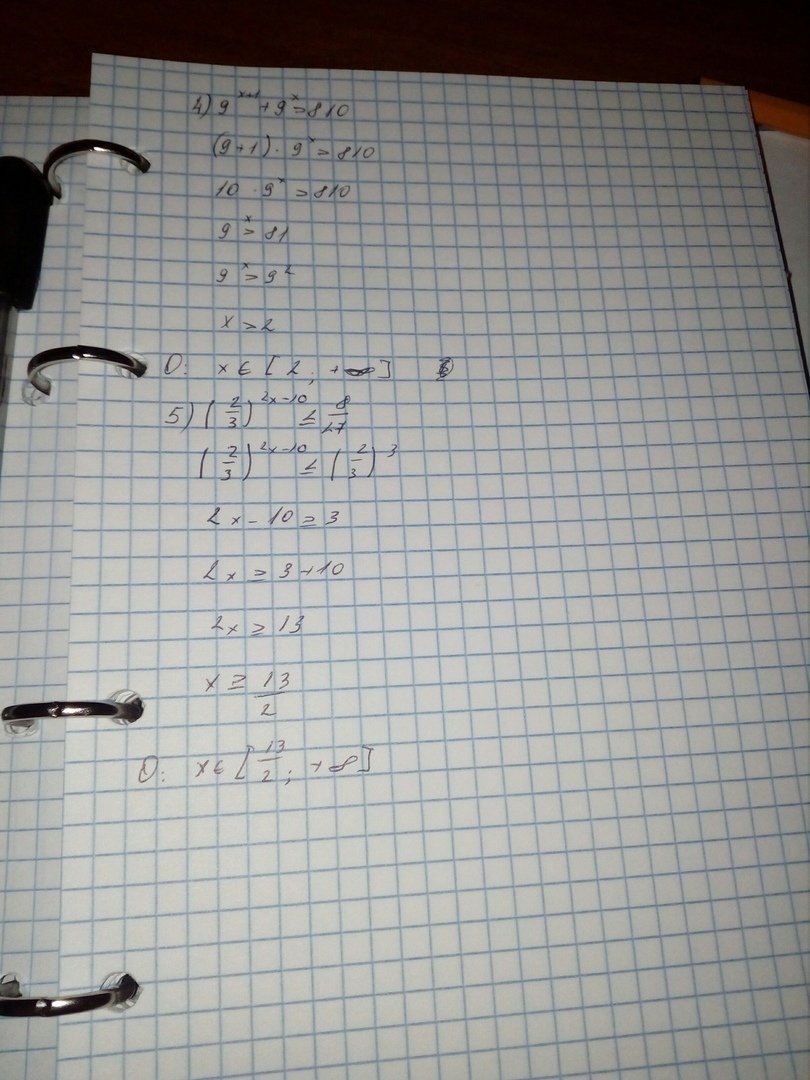 4) 9^(x+1) + 9^x > 810
(9+1) · 9^x > 810
10 · 9^x > 810
9^x > 81
9^x > 9^2
x > 2
O: x ∈ [2; +∞]
5) (2/3)^(2x-10) ≤ 8/27
(2/3)^(2x-10) ≤ (2/3)^3
2x - 10 ≥ 3
2x ≥ 3+10
2x ≥ 13
x ≥ 13/2
O: x ∈ [13/2; +∞]